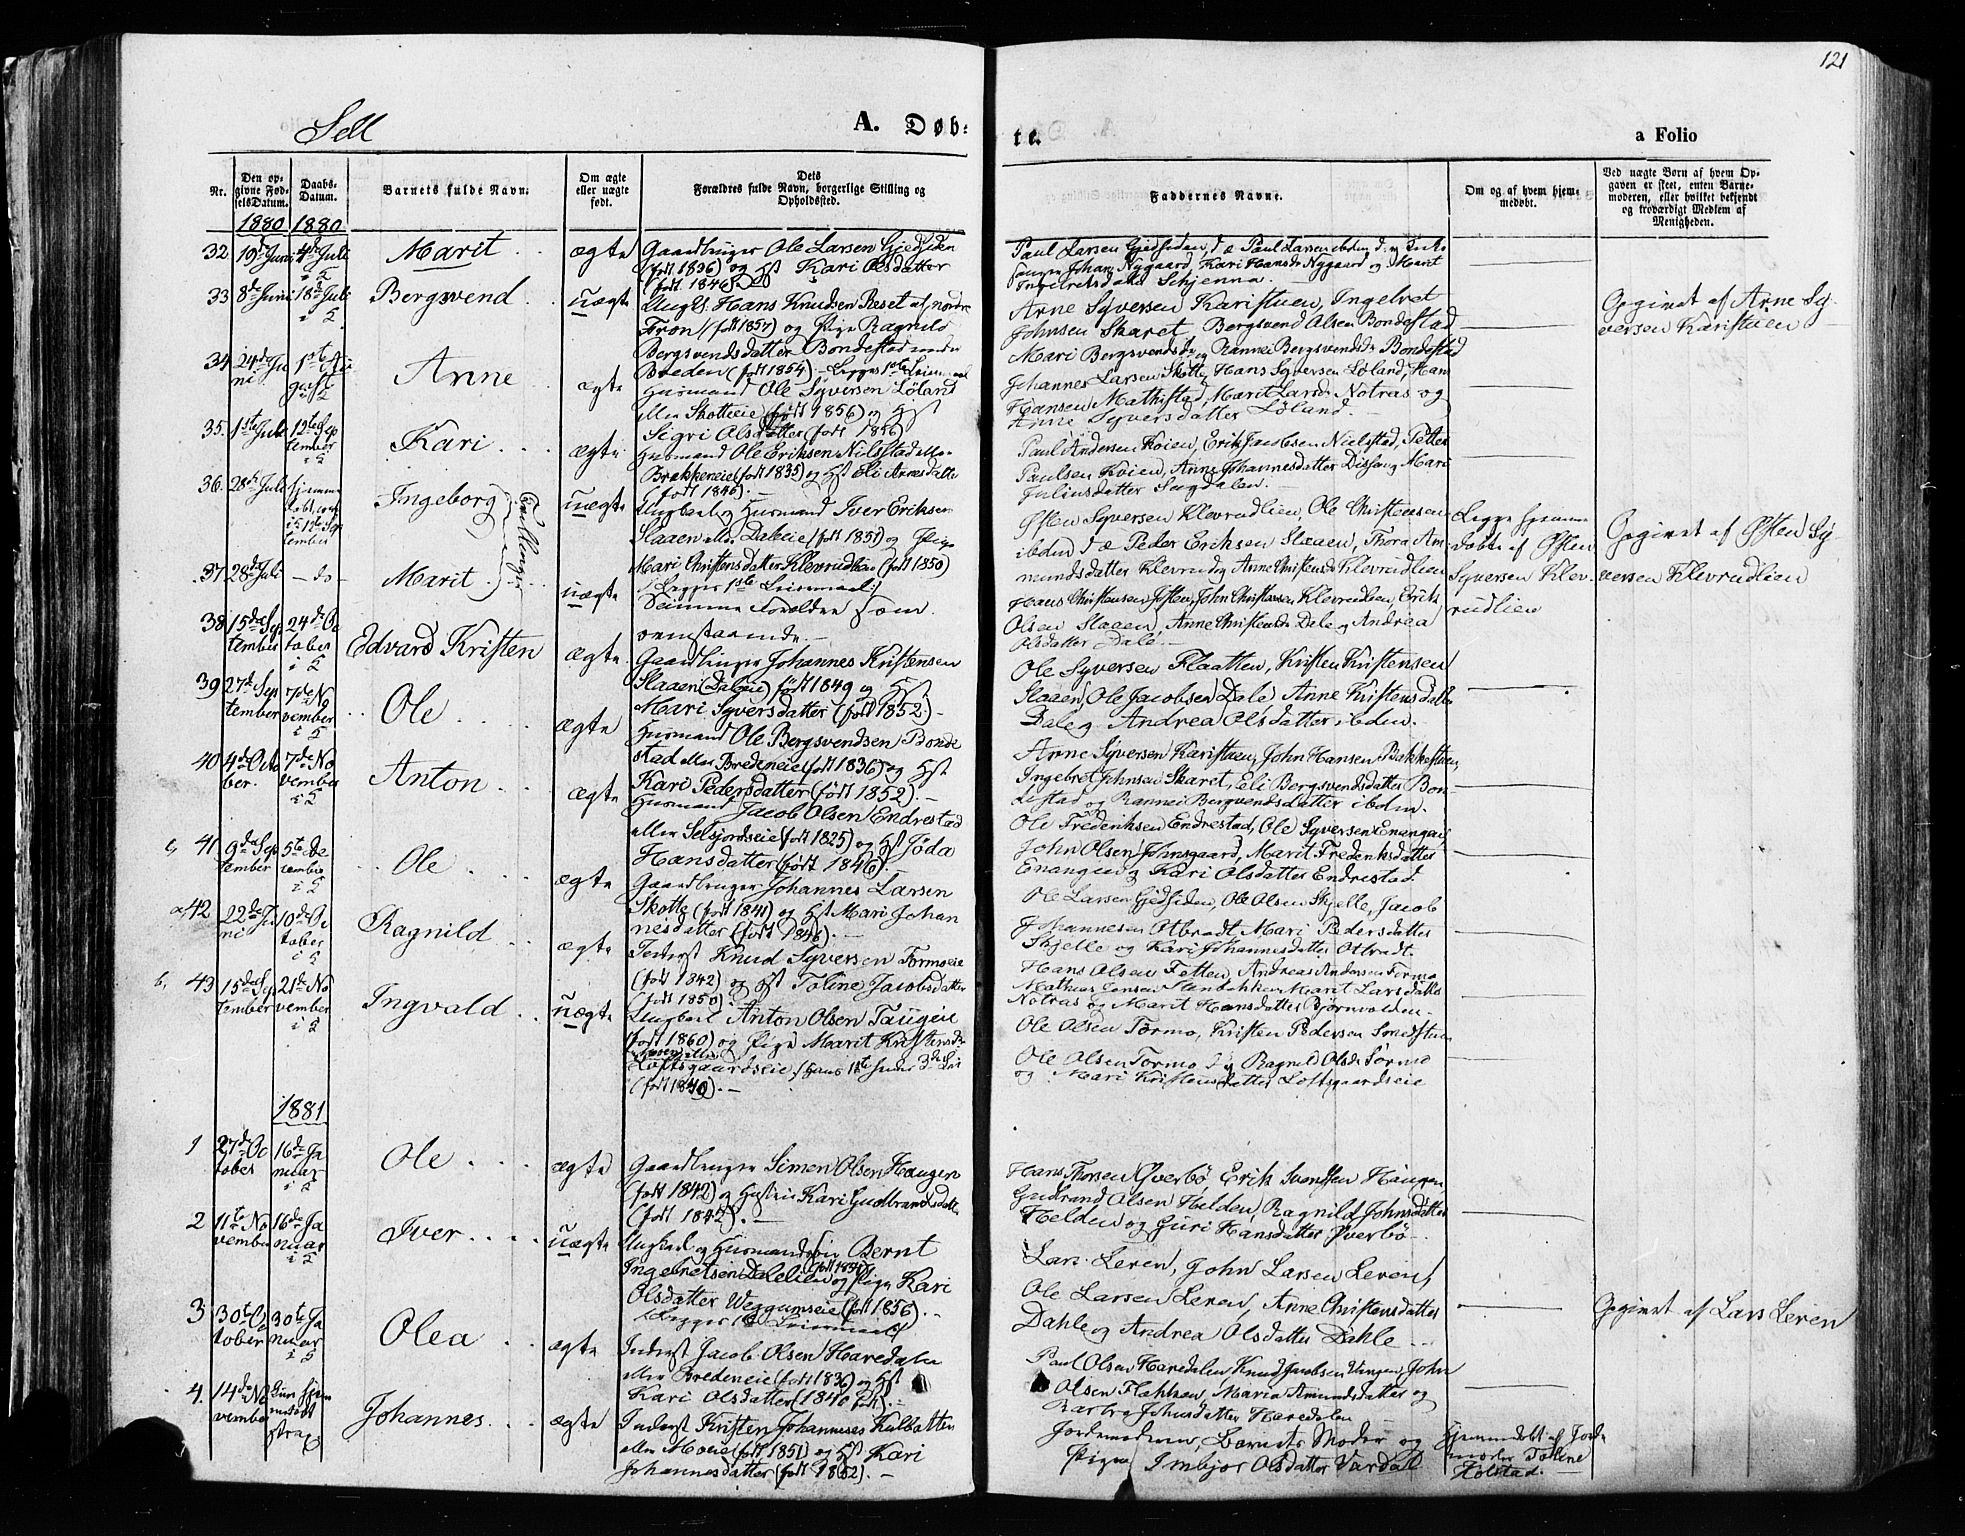 121
Sell
A. Døb-
te.
a Folio
Nr.
Den op-
givne Fød-
selsDatum.
Daabs-
Datum.
Barnets fulde Navn.
Om ægte
eller uægte
født.
Dets
Forældres fulde Navn, borgerlige Stilling og
Opholdssted.
Faddernes Navne.
Om og af hvem hjem-
medøbt.
Ved uægte Børn af hvem Op-
gaven er skeet, enten Barne-
moderen, eller hvilket bekjendt
og troværdigt Medlem af
Menigheden.
1880 1880
32 19de Juni 4de Juli i S Marit ægte
Gaardbruger Ole Larsen Gjedsiden
(født 1836) og Hst Kari Olsdatter
(født 1846)
Paul Larsen Gjedsiden,
Johan Nygaard, Kari Hansdr Nygaard og Marit
33 8de Juni 18de Juli i S Bergsvend uægte
Ungk. Hans Knudsen Reset af nordre
Fron (født 1857) og Pige Ragnild
Bergsvendsdatter Bondestad
Breden (født 1854) - Begges 1ste Leiermaal
Arne Syversen Karistuen, Ingebret
Johnsen Skaret, Bergsvend Olsen Bondestad
Mari Bergsvendsdr og Rannei Bergsvendsdr Bondestad
Opgivet af Arne Sy-
versen Karistuen
34 24de Ju
ni 1ste Au
gust i S Anne ægte
Husmand Ole Syversen Løland
eller Skotteeie (født 1856) og Hst
Sigri Olsdatter (født 1856)
Johannes Larsen Skotte, Hans Syversen Løland, Hans
Hansen Mathistad, Marit Larsdr Notras og
Anne Syversdatter Løland.
35. 1ste Juli 12te Sep
tember i S Kari ægte
Husmand Ole Eriksen Nielsstad eller
Brekkeneie (født 1835) og Hst Eli Arnesdatter
(født 1840).
Paul Andersen Køien, Erik Jacobsen Nielsstad, Petter
Paulsen Køien, Anne Johannesdatter og Mari
Juliusdatter Sagdalen.
36. 28de Juli hjemme
døbt,
i S 12te Sep
tember Ingeborg Tvillinger uægte
Ungkarl og Husmand Iver Eriksen
Slaaen eller Daleeie (født 1851) og Pige
Mari Christensdatter Klevrudlien (født 1850)
(Begges 1ste Leiermaal)
Østen Syversen Klevrudlien, Ole Christensen
ibden, Peder Eriksen Slaaen, Thora Am-
mundsdatter Klevrud og Anne Christensdr Klevrudlien
Begge hjemme-
døbte af Østen
Syversen Klev-
rudlien
Opgivet af Østen Sy-
versen Klevrudlien
37 28de Juli - do - Marit uægte
Samme Forældre som
ovenstaaende.
Hans Christensen, John Christensen Klevrudlien, Erik
Olsen Slaaen, Anne Christensdr Dale og Andrea
Olsdatter Dale
38 15de Sep
tember 24de Oc
tober i S Edvard Kristen ægte
Gaardbruger Johannes Kristensen
Slaaen (Daleie) født 1849 og Hst
Mari Syversdatter (født 1852)
Ole Syversen Flaatten, Kristen Kristensen
Slaaen, Ole Jacobsen Dale, Anne Kristensdatter
Dale og Andrea Olsdatter ibden.
39 27de Sep
tember 7de No
vember i S Ole ægte
Husmand Ole Bergsvendsen Bonde
stad eller Bredeneie (født 1836) og Hst
Kari Pedersdatter (født 1852).
Arne Syversen Karistuen, John Hansen Bakkestuen,
Ingebret Johnsen Skaret, Eli Bergsvendsdatter Bon
destad og Rannei Bergsvendsdatter ibden.
40 4de Octo
ber. 7de No
vember i S Anton ægte
Husmand Jacob Olsen Endrestad
eller Selsjordseie (født 1825) og Hst Jøda
Hansdatter (født 1846)
Ole Frederiksen Endrestad, Ole Syversen Enangen,
John Olsen Johnsgaard, Marit Frederiksdatter
Enangen og Kari Olsdatter Endrestad.
c, 41 9de Sep
tember 5te De
cember i S Ole ægte
Gaardbruger Johannes Larsen
Skotte (født 1841) og Hst Mari Johan
nesdatter (født 1846).
Ole Larsen Gjedsiden, Ole Olsen Skjelle, Jacob
Johannesen Otbradt, Mari Pedersdatter
Skjelle og Kari Johannesdatter Otbradt.
a 42 22de Ju
ni 10de Oc
tober i S Ragnild ægte
Inderst Knud Syversen Formoeie
(født 1842) og Hst Toline Jacobsdatter
(født 1850)
Hans Olsen Fetten, Andreas Andersen Formo,
Mathias Hansen Marit Larsdatter
Notras og Marit Hansdatter Bjørnvolden.
b, 43 15de Sep
tember 21de No
vember i S Ingvald uægte
Ungkarl Anton Olsen Taugeie
(født 1860) og Pige Marit Kristensdr
Loftsgaardseie (hans 1ste hendes 3de Lei
(født 1840).
Ole Olsen Formo, Kristen Pedersen
Ole Olsen Formo, og Ragnild Olsdr Formo
og Mari Kristensdatter Loftsgaardseie
1881
1 27de Oc
tober 16de Ja
nuar i S Ole ægte
Gaardbruger Simen Olsen Haugen
(født 1842) og Hustru Kari Gudbrandsdatter
(født 1842).
Hans Thorsen Øverbø, Erik Svendsen Haugen
Gudbrand Olsen Helden, Ragnild Johnsdatter
Helden og Guri Hansdatter Øverbø
2 11te No
vember 16de Ja
nuar i S Iver uægte
Ungkarl og Husmandssøn Bernt
Ingebretsen Dalelien og Pige Kari
Olsdatter Weggumseie (født 1856).
(Begges 1ste Leiermaal)
Lars Leren, John Larsen Leren,
Ole Larsen Leren, Anne Christensdatter
Dahle og Andrea Olsdatter Dahle
Opgivet af Lars Leren
3 30te Oc
tober 30te Ja
nuar i S Olea ægte
Inderst Jacob Olsen Haredalen
eller Bredeneie (født 1836) og Hst
Kari Olsdatter (1840 født).
Paul Olsen Haredalen, Knud Jacobsen, John
Olsen Flakken, Maria Amundsdatter og
Barbro Johnsdatter Haredalen
4. 14de No
vember hjem
medøbt
strax Johannes ægte
Inderst Kristen Johannesen
eller Moeie (født 1851) og Hst Kari
Johannesdatter (født 1852).
Jordemoderen, Barnets Moder og
Pigen Imbjør Olsdatter Vardal
Hjemmedøbt af Jorde
moder Toline
Holstad.